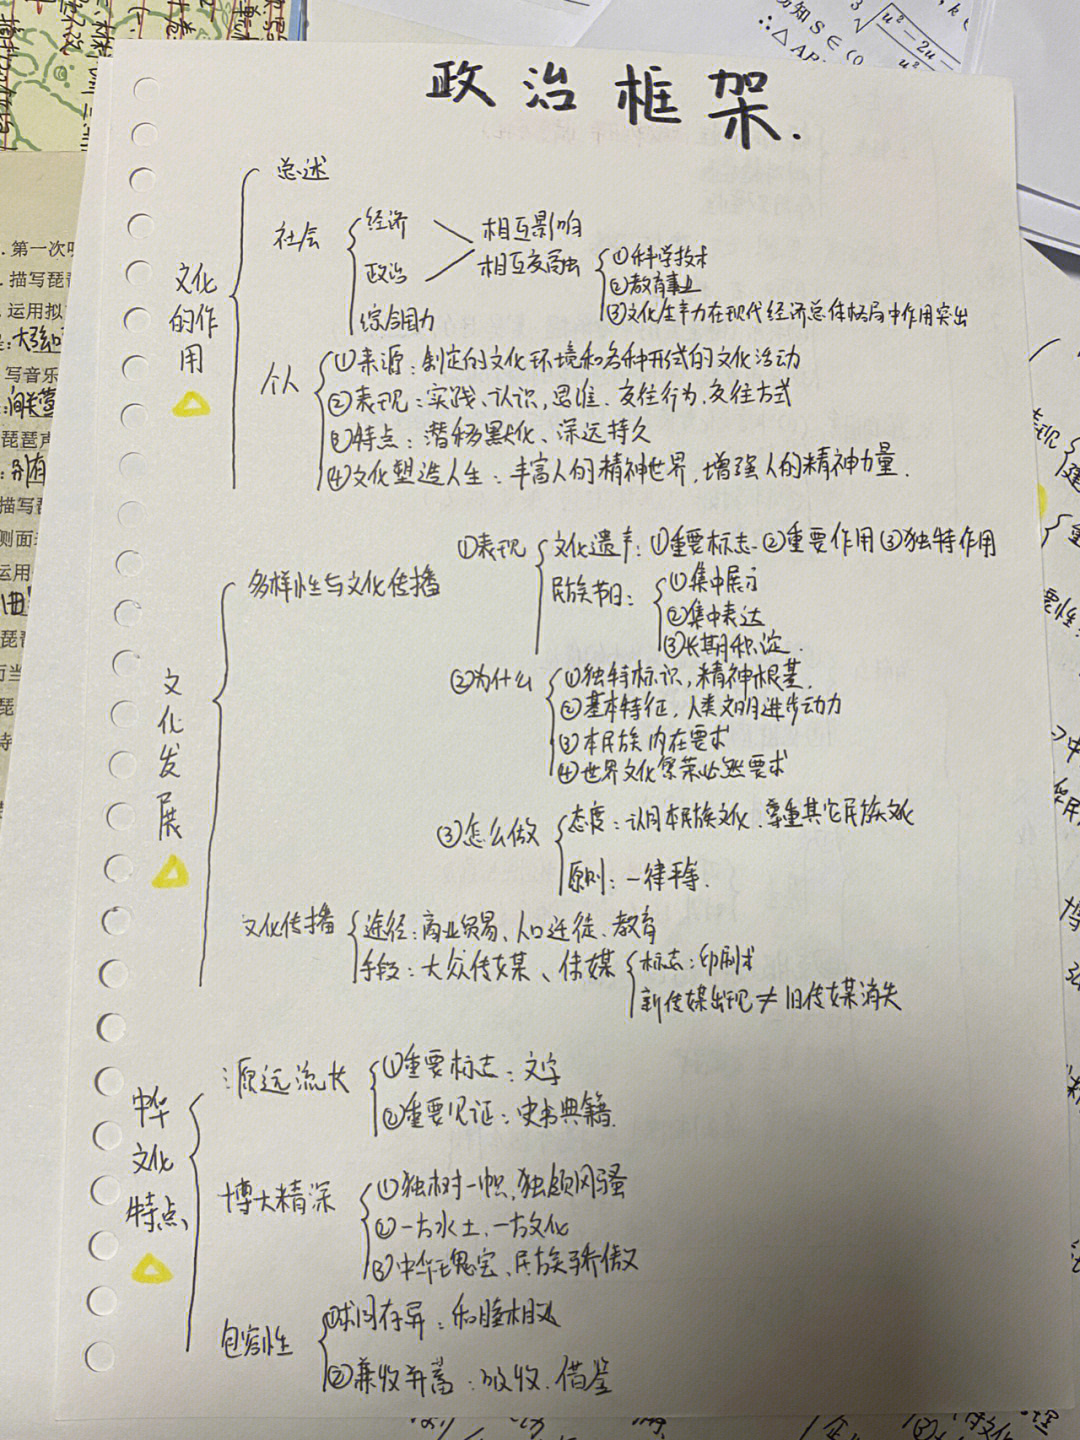 政治框架.
文化的作用
总述
社会
经济
相互影响
政治
相互交融
①科学技术
②教育事业
③文化生产力在现代经济总体格局中作用突出
综合国力
个人
①来源：制定的文化环境和各种形式的文化活动
②表现：实践、认识，思维、交往行为、交往方式
③特点：潜移默化、深远持久
④文化塑造人生：丰富人的精神世界，增强人的精神力量.
文化发展
多样性与文化传播
①表现
文化遗产：①重要标志.②重要作用③独特作用
民族节日：
①集中展示
②集中表达
③长期积淀.
②为什么
①独特标识，精神根基.
②基本特征，人类文明进步动力
③本民族内在要求
④世界文化繁荣必然要求
③怎么做
态度：认同本民族文化、尊重其它民族文化
原则：一律平等.
文化传播
途径：商业贸易、人口迁徒、教育
手段：大众传媒、传媒
标志：印刷术
新传媒出现≠旧传媒消失
中华文化特点、
源远流长
①重要标志：文字
②重要见证：史书典籍.
博大精深
①独树一帜，独领风骚
②一方水土、一方文化
③中华瑰宝、民族骄傲
包容性
①求同存异：和睦相处
②兼收并蓄：吸收、借鉴
.第一次
.描写琵
运用拟
写音乐
琵琶声
描写琵
侧面
运用